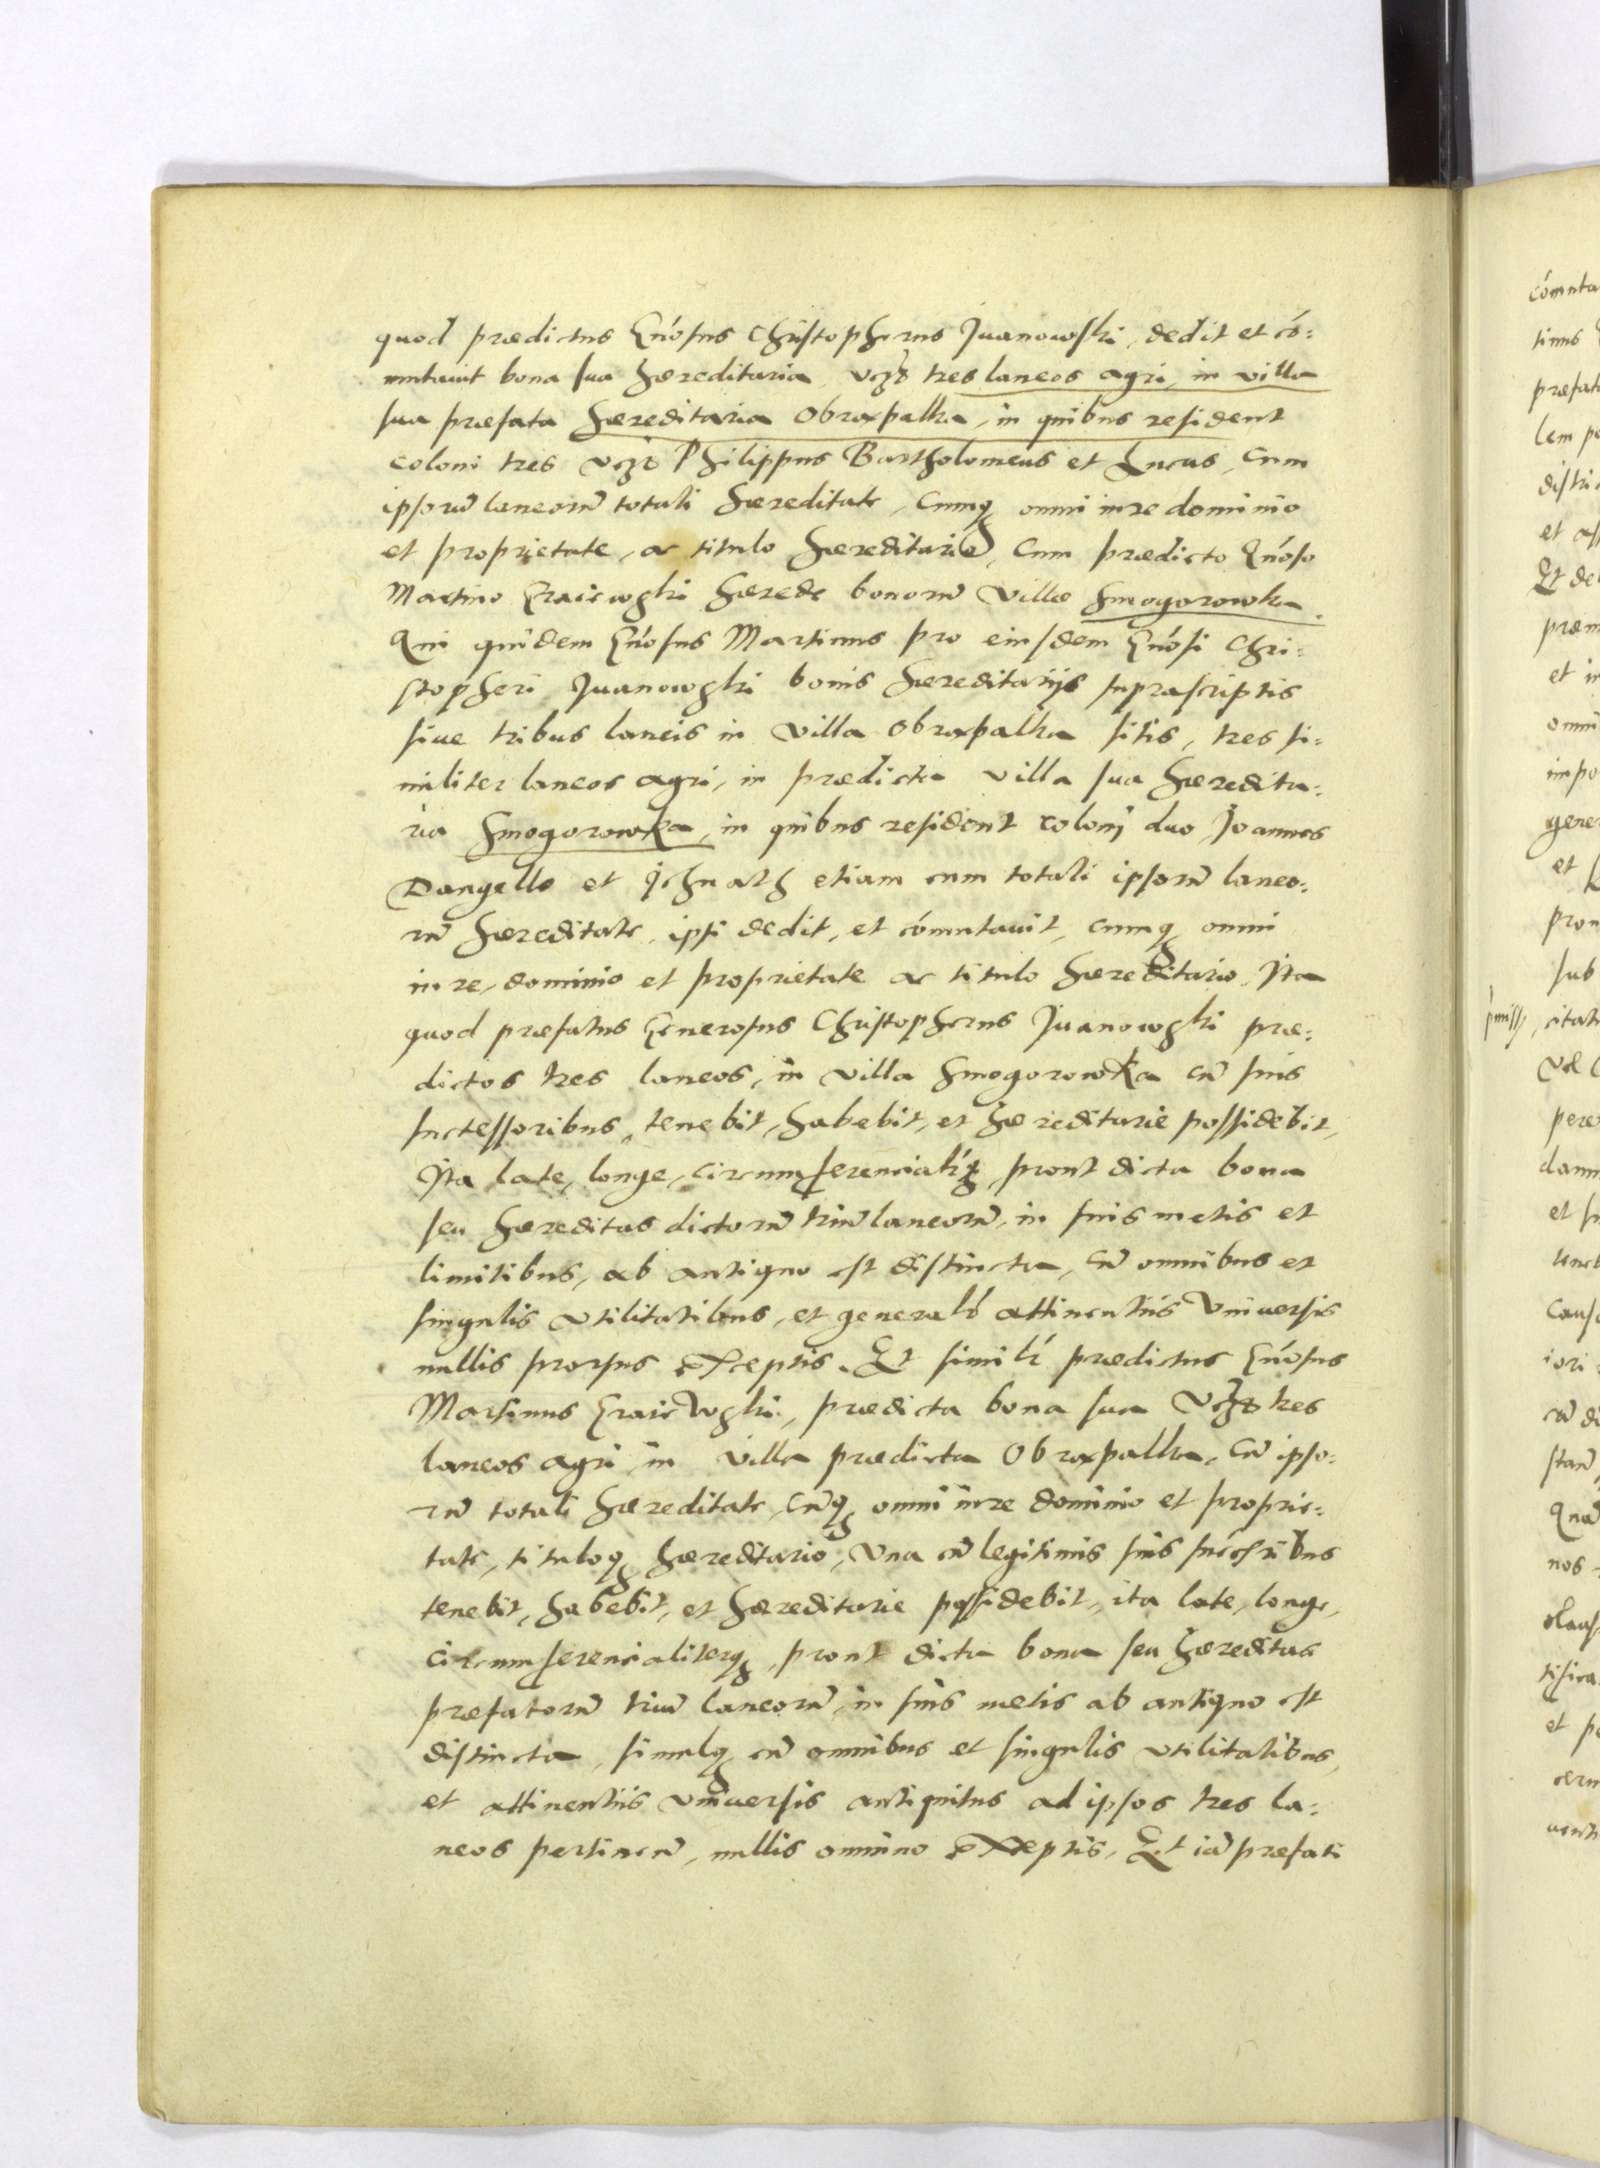 quod prædictus Gn̄osus Christopherus Juanowski, dedit et cō:
mutauit bona sua hæreditaria, vcz tres laneos agri, in villa
sua præfata hæreditaria Obrapalka, in quibus resident
coloni tres vcz Philippus Bartholomeus et Lucas, Cum
ipsorū laneorū totali hæreditate, Cumq omni iure dominio
et proprietate, ac titulo hæreditario, Cum prædicto Gn̄oso
Martino hærede bonorū Villæ Smogorowka.
Qui quidem Gn̄osus Martinus pro eiusdem Gn̄osi Chri:
stopheri Juanowski bonis hæreditarijs suprascriptis
siue tribus laneis in villa Obrapalka sitis, tres si:
militer laneos agri, in prædicta villa sua hæredita:
ria Smogorowka, in quibus resident colonj duo, Joannes
Dangello et Jchnath etiam cum totali ipsorū laneo:
rū hæreditate, ipsi dedit, et cōmutauit, cumq omni
iure, dominio et proprietate ac titulo hæreditario. Ita
quod præfatus Generosus Christopherus Juanowski præ:
dictos tres laneos, in villa Smogorowka cū suis
successoribus, tenebit, habebit, et hæreditarie possidebit,
Ita late, longe, circumferencialr̄q, prout dicta bona
seu hæreditas dictorū triū laneorū, in suis metis et
limitibus, ab antiquo est distincta, cū omnibus et
singulis vtilitatibus, et generalr̄ attinentiis vniuersis
nullis prorsus exceptis. Et similr̄ prædictus Gn̄osus
Martinus prædicta bona sua vcz tres
laneos agri in villa prædicta Obrapalka, Cū ipso:
rū totali hæreditate, cūq omni iure dominio et proprie:
tate, tituloq hæreditario, vna cū legitimis suis succ̄sribus
tenebit, habebit, et hæreditarie possidebit, ita late, longe,
circumferencialiterq, prout dicta bona seu hæreditas
præfatorū triū laneorū, in suis metis ab antiquo est
distincta, simulq cū omnibus et singulis vtilitatibus,
et attinentiis vniuersis antiquitus ad ipsos tres la:
neos pertinen̄, nullis omnino exceptis, Et iā præfati